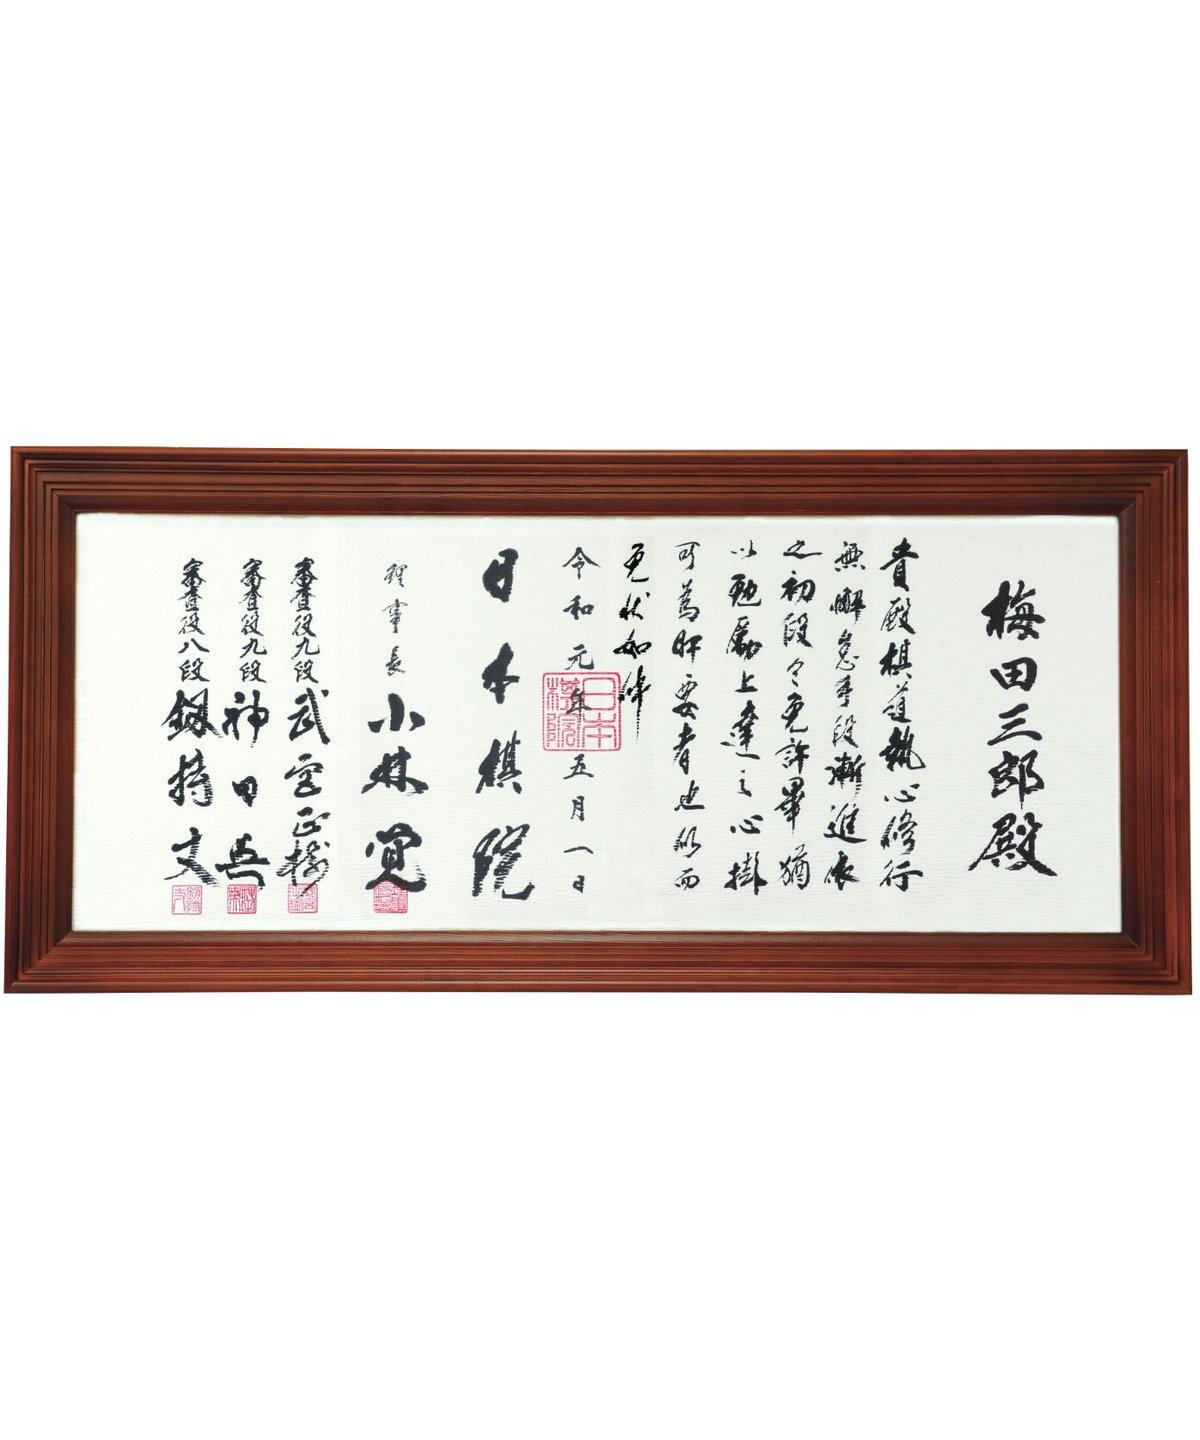 梅田三郎殿
貴殿棋道執心修行
無懈怠手段漸進依
之初段令免許畢猶
以勉励上達之心掛
可為肝要者也仍而
免状如件
令和元年五月一日
日本棋院
理事長 小林覚
審査役九段 武宮正樹
審査役九段 神田英
審査役八段 剱持丈
日本棋院